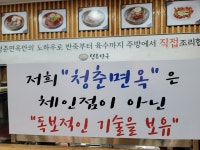 청춘면옥만의 노하우로 반죽부터 육수까지 주방에서 직접조리합
청춘면옥
저희 "청춘면옥"은
체인점이 아닌
"독보적인 기술을 보유"